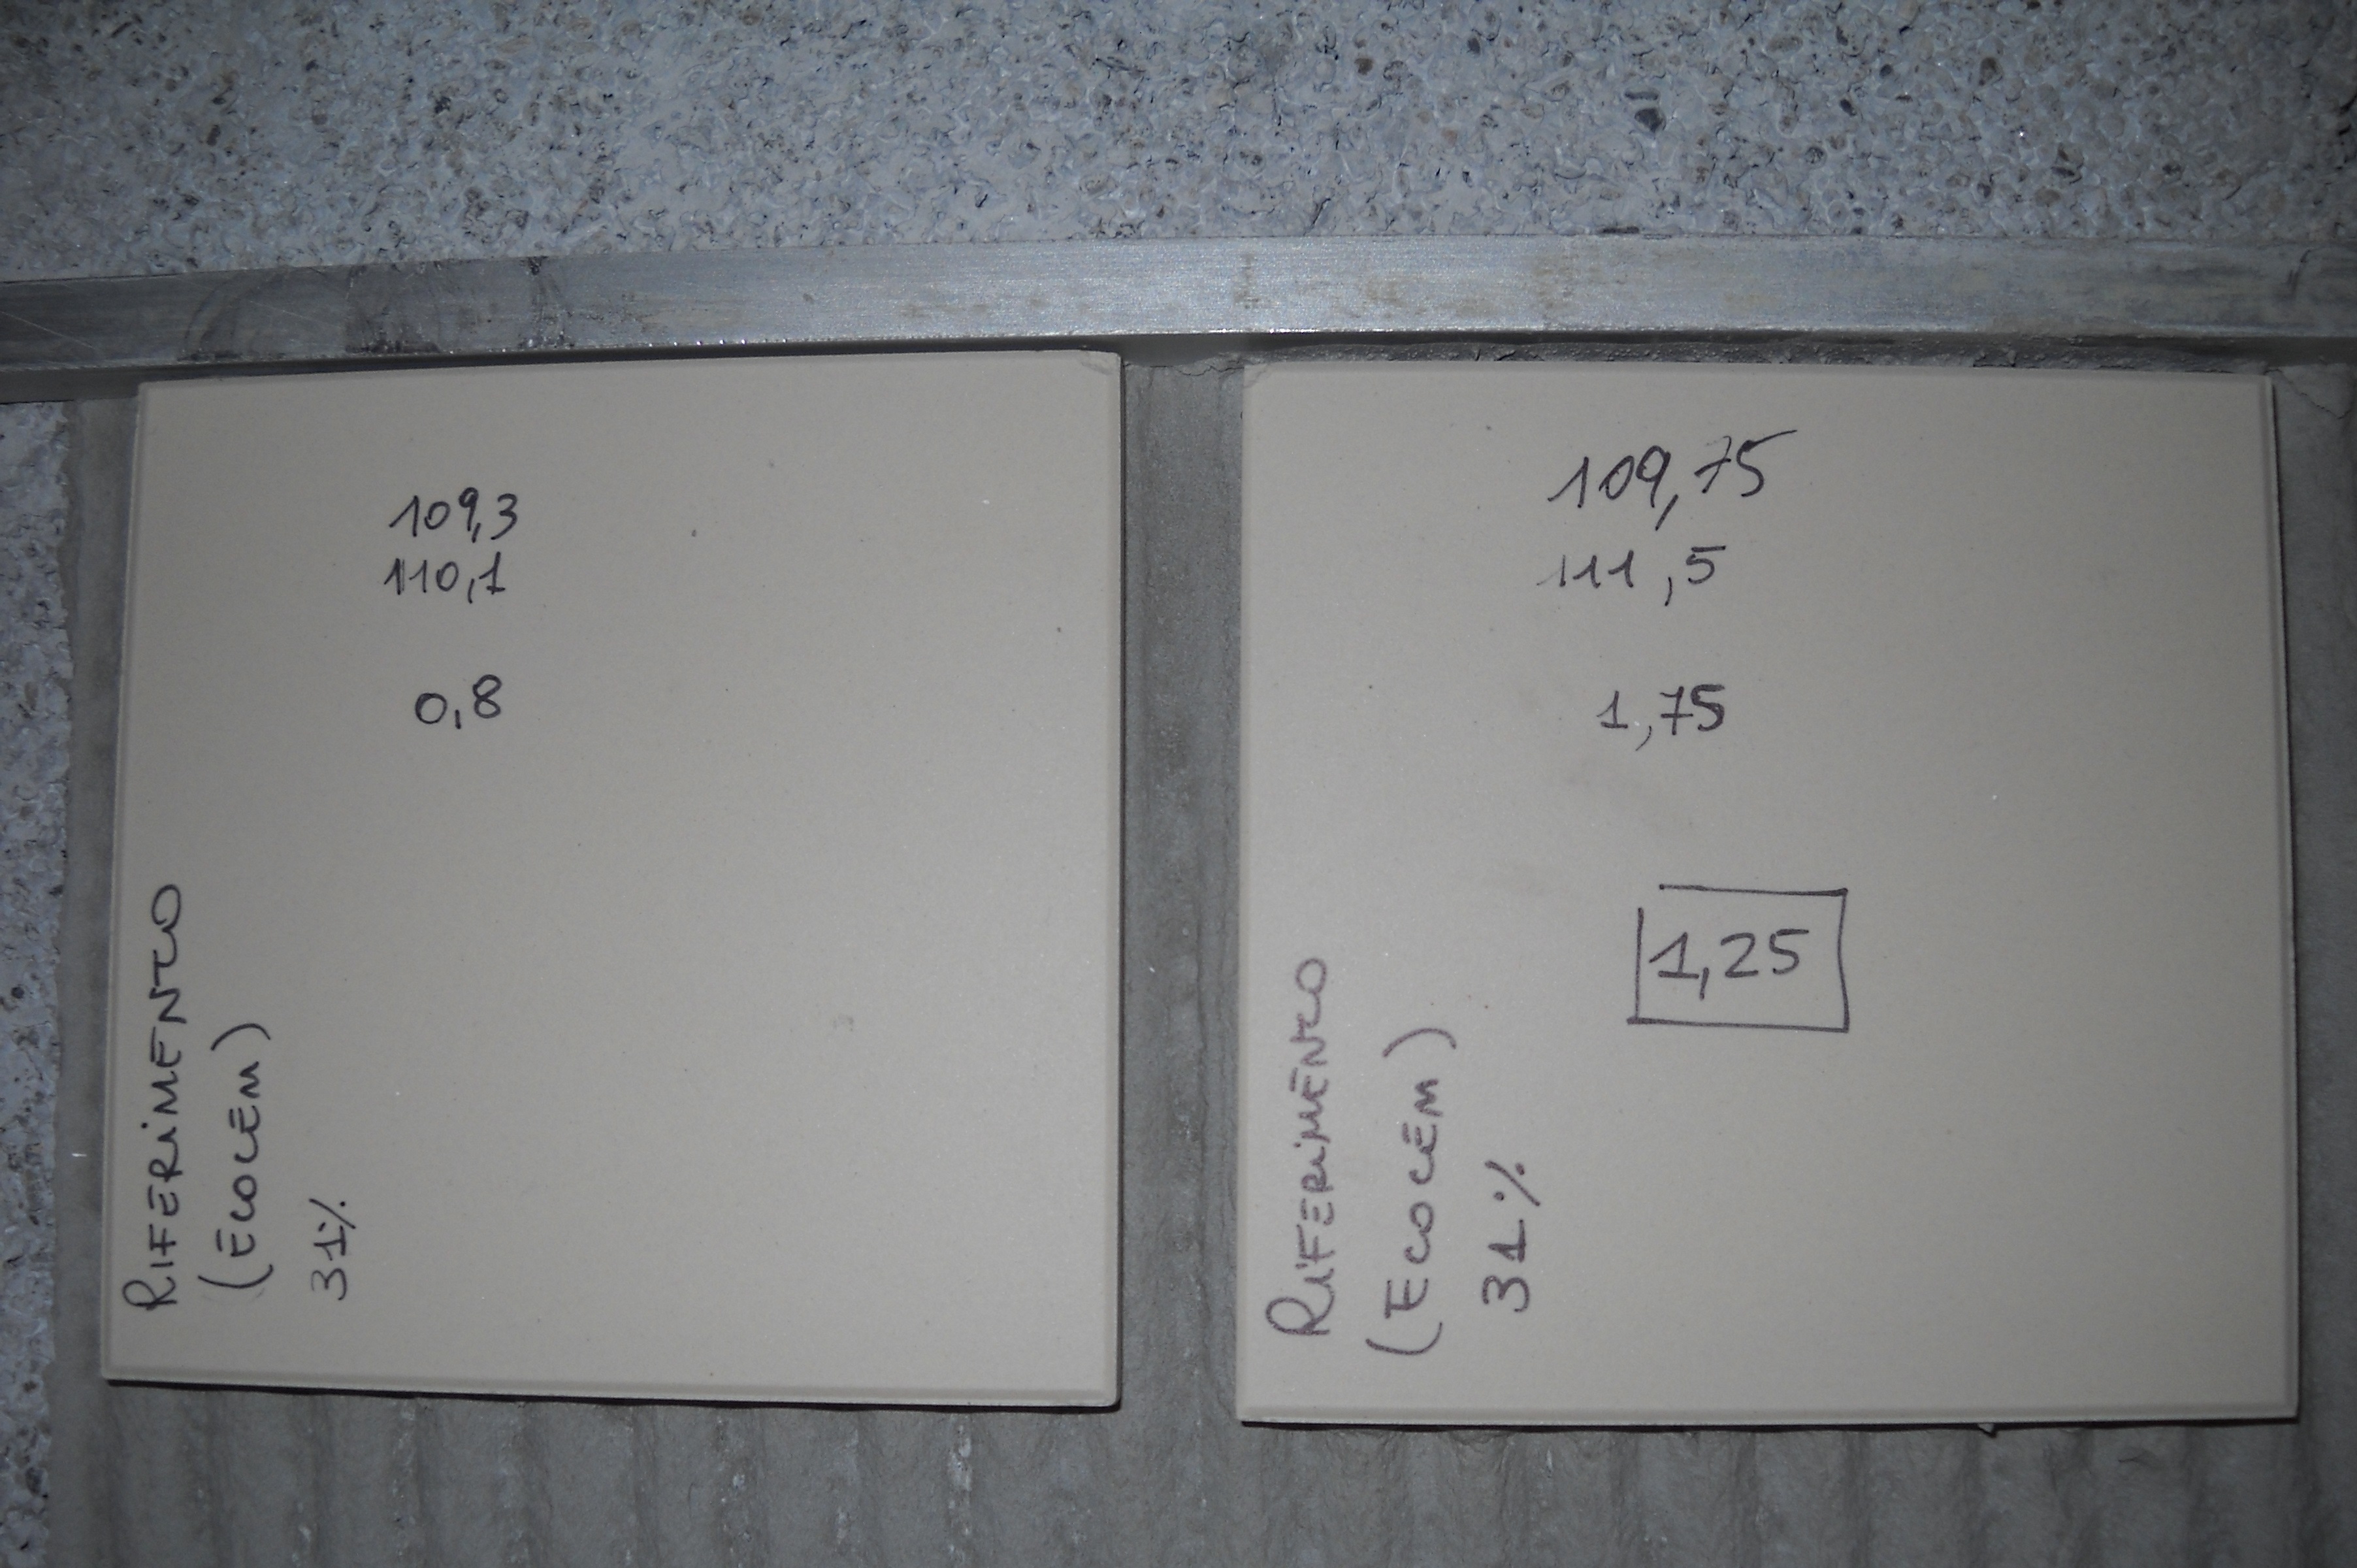 109,3
110,1
0,8
RIFERIMENTO
(ECOCEM)
31%
109,75
111,5
1,75
1,25
RIFERIMENTO
(ECOCEM)
31%